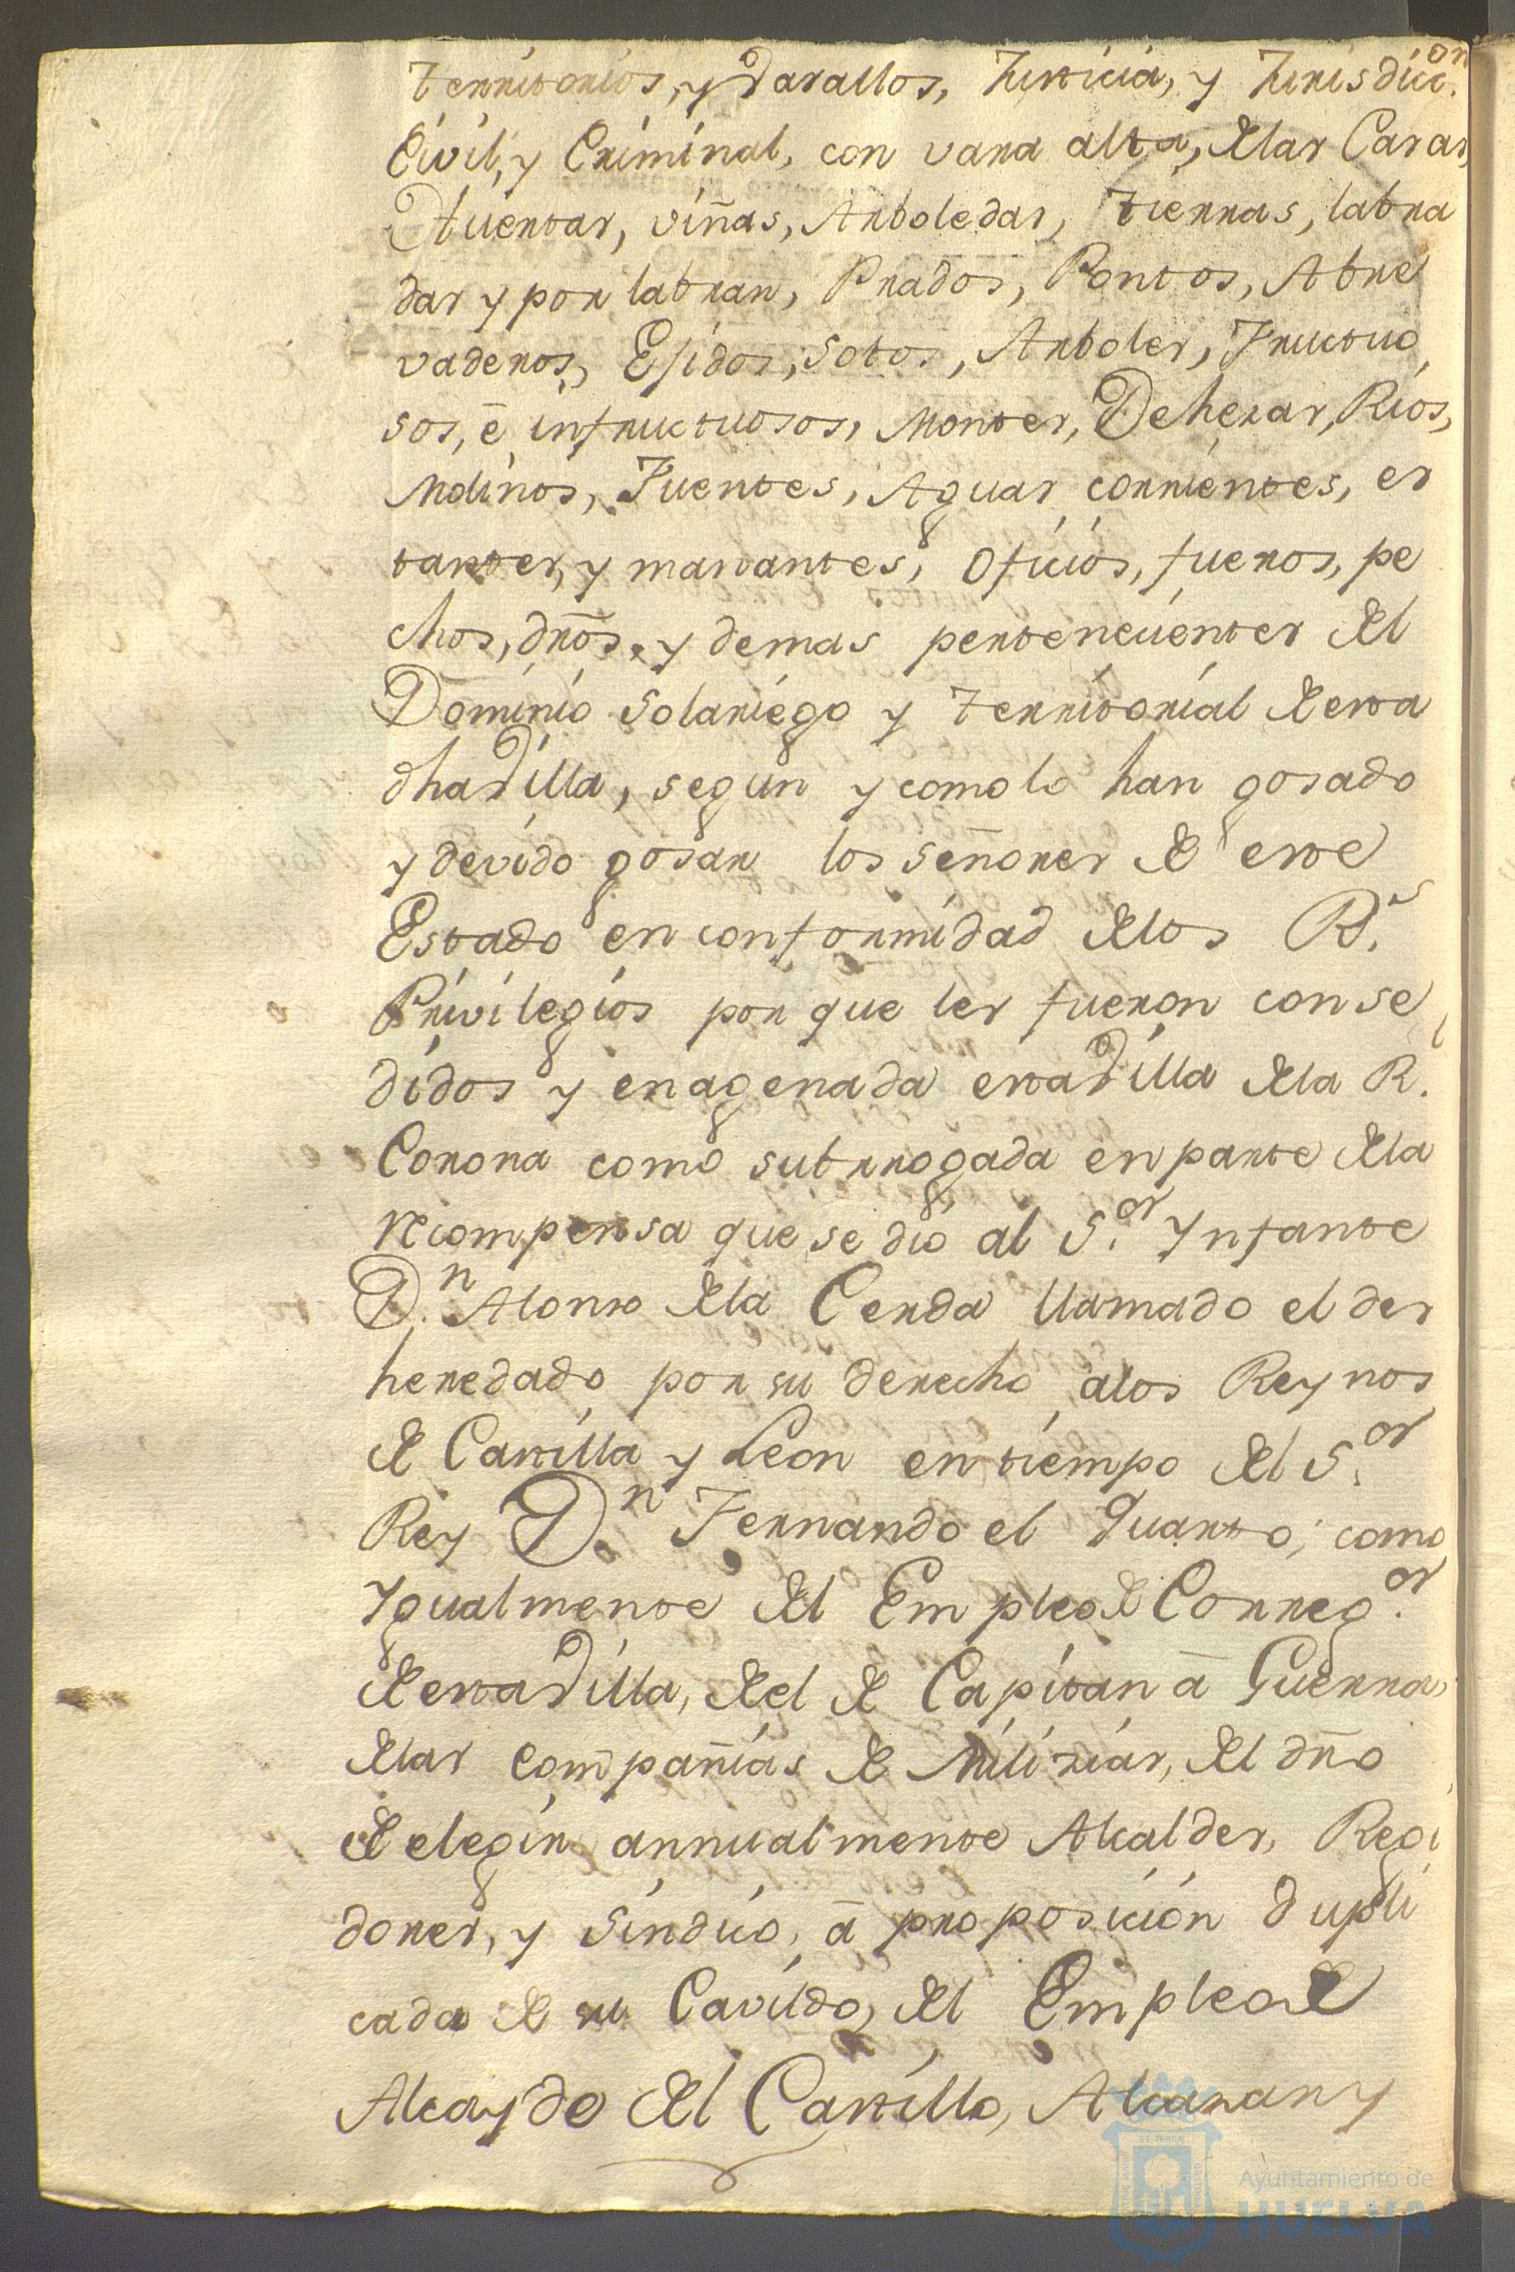 territorios, y Vasallos, Justicia, y Jurisdicc.on
Civil, y Criminal, con vara alta, de las Casas,
Huertas, viñas, Arboledas, tierras, labra
das y por labrar, Prados, Pastos, Abre
vaderos, Esidos, Sotos, Arboles, Fructuo
sos, é infructuosos, Montes, Dehezas, Rios,
Molinos, Fuentes, Aguas corrientes, es
tantes, y manantes, Oficios, fueros, pe
chos, dros, y demas pertenecientes del
Dominio Solariego y territorial de esta
dha Villa, segun y como lo han gosado
y devido gosar los señores de este
Estado en conformidad de los R.s
Privilegios por que les fueron conse
didos y enagenada esta Villa de la R.l
Corona como subrrogada en parte de la
recompensa que se dio al S.or Ynfante
D.n Alonso de la Cerda llamado el des
heredado por su derecho a los Reynos
de Castilla y Leon en tiempo del S.or
Rey D.n Fernando el Quarto; como
Ygualmente del Empleo de Correg.or
de esta Villa, del de Capitan â Guerra,
de las Compañias de Milizias, del dro
de elegir annualmente Alcaldes, Regi
dores, y Sindico, â proposicion dupli
cada de su Cavildo, del Empleo de
Alcayde del Castillo, Alcazar y
Ayuntamiento de
HUELVA